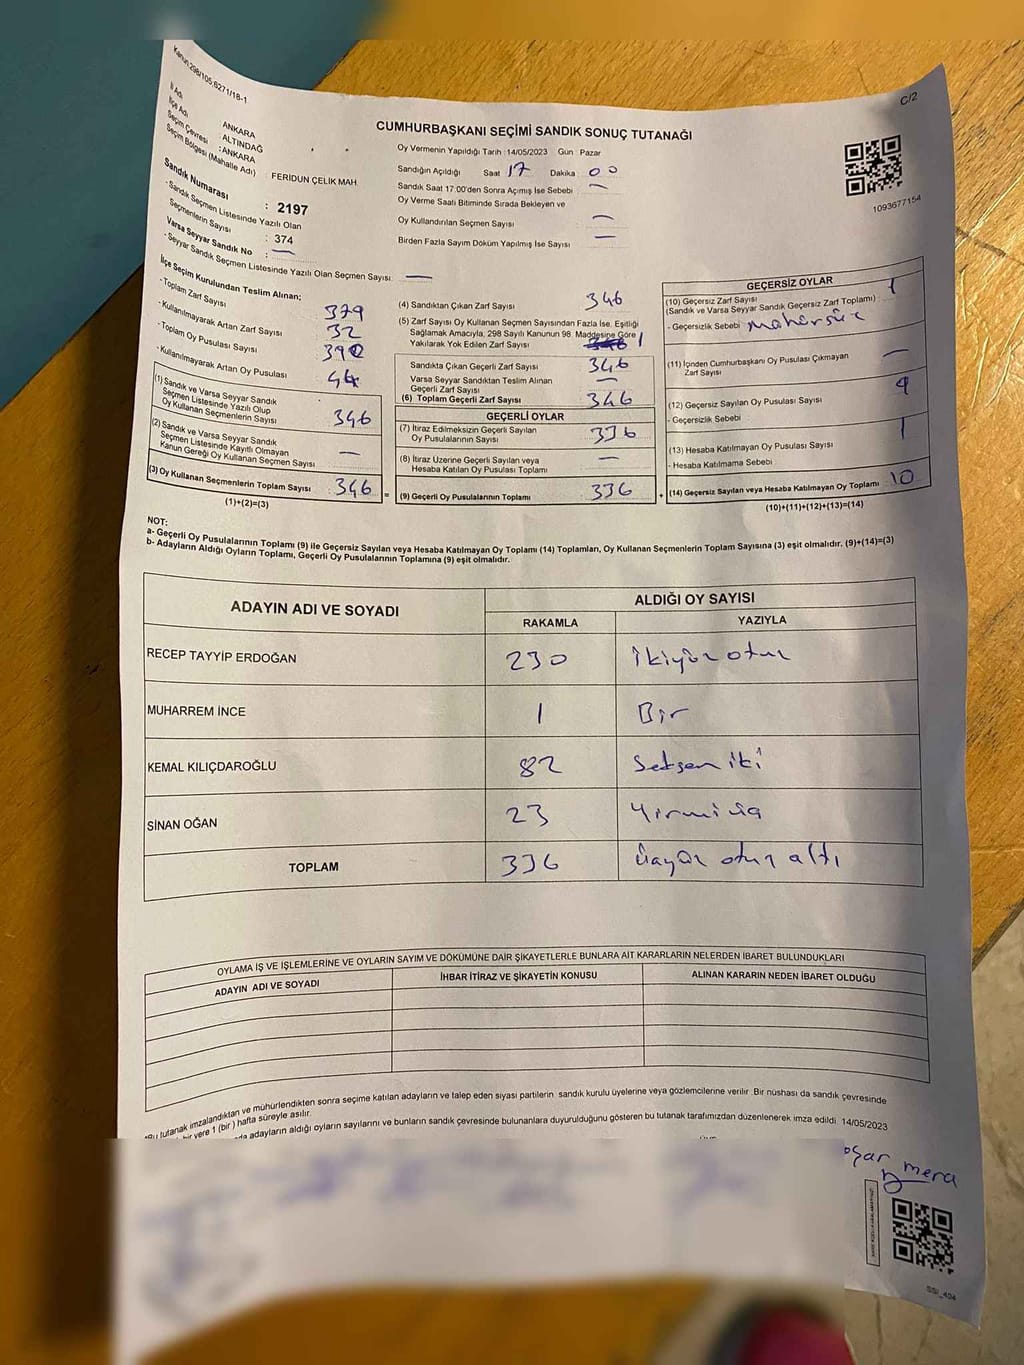 Kanun:298/105;6271/18-1
C/2
CUMHURBAŞKANI SEÇİMİ SANDIK SONUÇ TUTANAĞI
İl Adı : ANKARA
İlçe Adı : ALTINDAĞ
Seçim Çevresi : ANKARA
Seçim Bölgesi (Mahalle Adı) FERİDUN ÇELİK MAH
Sandık Numarası : 2197
- Sandık Seçmen Listesinde Yazılı Olan
Seçmenlerin Sayısı : 374
Varsa Seyyar Sandık No : —
- Seyyar Sandık Seçmen Listesinde Yazılı Olan Seçmen Sayısı: —
Oy Vermenin Yapıldığı Tarih :14/05/2023 Gün : Pazar
Sandığın Açıldığı Saat 17 Dakika 00
Sandık Saat 17:00'den Sonra Açımış İse Sebebi —
Oy Verme Saati Bitiminde Sırada Bekleyen ve
Oy Kullandırılan Seçmen Sayısı —
Birden Fazla Sayım Döküm Yapılmış İse Sayısı —
1093677154
İlçe Seçim Kurulundan Teslim Alınan;
- Toplam Zarf Sayısı 379
- Kullanılmayarak Artan Zarf Sayısı 32
- Toplam Oy Pusulası Sayısı 390
- Kullanılmayarak Artan Oy Pusulası 44
(1) Sandık ve Varsa Seyyar Sandık
Seçmen Listesinde Yazılı Olup
Oy Kullanan Seçmenlerin Sayısı 346
(2) Sandık ve Varsa Seyyar Sandık
Seçmen Listesinde Kayıtlı Olmayan
Kanun Gereği Oy Kullanan Seçmen Sayısı —
(3) Oy Kullanan Seçmenlerin Toplam Sayısı 346
(1)+(2)=(3)
=
(4) Sandıktan Çıkan Zarf Sayısı 346
(5) Zarf Sayısı Oy Kullanan Seçmen Sayısından Fazla İse, Eşitliği
Sağlamak Amacıyla, 298 Sayılı Kanunun 98. Maddesine Göre
Yakılarak Yok Edilen Zarf Sayısı
Sandıkta Çıkan Geçerli Zarf Sayısı 346
Varsa Seyyar Sandıktan Teslim Alınan
Geçerli Zarf Sayısı —
(6) Toplam Geçerli Zarf Sayısı 346
GEÇERLİ OYLAR
(7) İtiraz Edilmeksizin Geçerli Sayılan
Oy Pusulalarının Sayısı 336
(8) İtiraz Üzerine Geçerli Sayılan veya
Hesaba Katılan Oy Pusulası Toplamı —
(9) Geçerli Oy Pusulalarının Toplamı 336
+
GEÇERSİZ OYLAR
(10) Geçersiz Zarf Sayısı
(Sandık ve Varsa Seyyar Sandık Geçersiz Zarf Toplamı) : 1
- Geçersizlik Sebebi mühürsüz
(11) İçinden Cumhurbaşkanı Oy Pusulası Çıkmayan
Zarf Sayısı —
(12) Geçersiz Sayılan Oy Pusulası Sayısı 9
- Geçersizlik Sebebi
(13) Hesaba Katılmayan Oy Pusulası Sayısı 1
- Hesaba Katılmama Sebebi
(14) Geçersiz Sayılan veya Hesaba Katılmayan Oy Toplamı : 10
(10)+(11)+(12)+(13)=(14)
NOT:
a- Geçerli Oy Pusulalarının Toplamı (9) ile Geçersiz Sayılan veya Hesaba Katılmayan Oy Toplamı (14) Toplamları, Oy Kullanan Seçmenlerin Toplam Sayısına (3) eşit olmalıdır. (9)+(14)=(3)
b- Adayların Aldığı Oyların Toplamı, Geçerli Oy Pusulalarının Toplamına (9) eşit olmalıdır.
ADAYIN ADI VE SOYADI ALDIĞI OY SAYISI
RAKAMLA YAZIYLA
RECEP TAYYİP ERDOĞAN 230 İkiyüz otuz
MUHARREM İNCE 1 Bir
KEMAL KILIÇDAROĞLU 82 Seksen iki
SİNAN OĞAN 23 Yirmi üç
TOPLAM 336 üçyüz otuz altı
OYLAMA İŞ VE İŞLEMLERİNE VE OYLARIN SAYIM VE DÖKÜMÜNE DAİR ŞİKAYETLERLE BUNLARA AİT KARARLARIN NELERDEN İBARET BULUNDUKLARI
ADAYIN ADI VE SOYADI İHBAR İTİRAZ VE ŞİKAYETİN KONUSU ALINAN KARARIN NEDEN İBARET OLDUĞU
tutanak imzalandıktan ve mühürlendikten sonra seçime katılan adayların ve talep eden siyasi partilerin sandık kurulu üyelerine veya gözlemcilerine verilir. Bir nüshası da sandık çevresinde
yere 1 (bir) hafta süreyle asılır.
adayların aldığı oyların sayılarını ve bunların sandık çevresinde bulunanlara duyurulduğunu gösteren bu tutanak tarafımızdan düzenlenerek imza edildi. 14/05/2023
mera
SSI_404